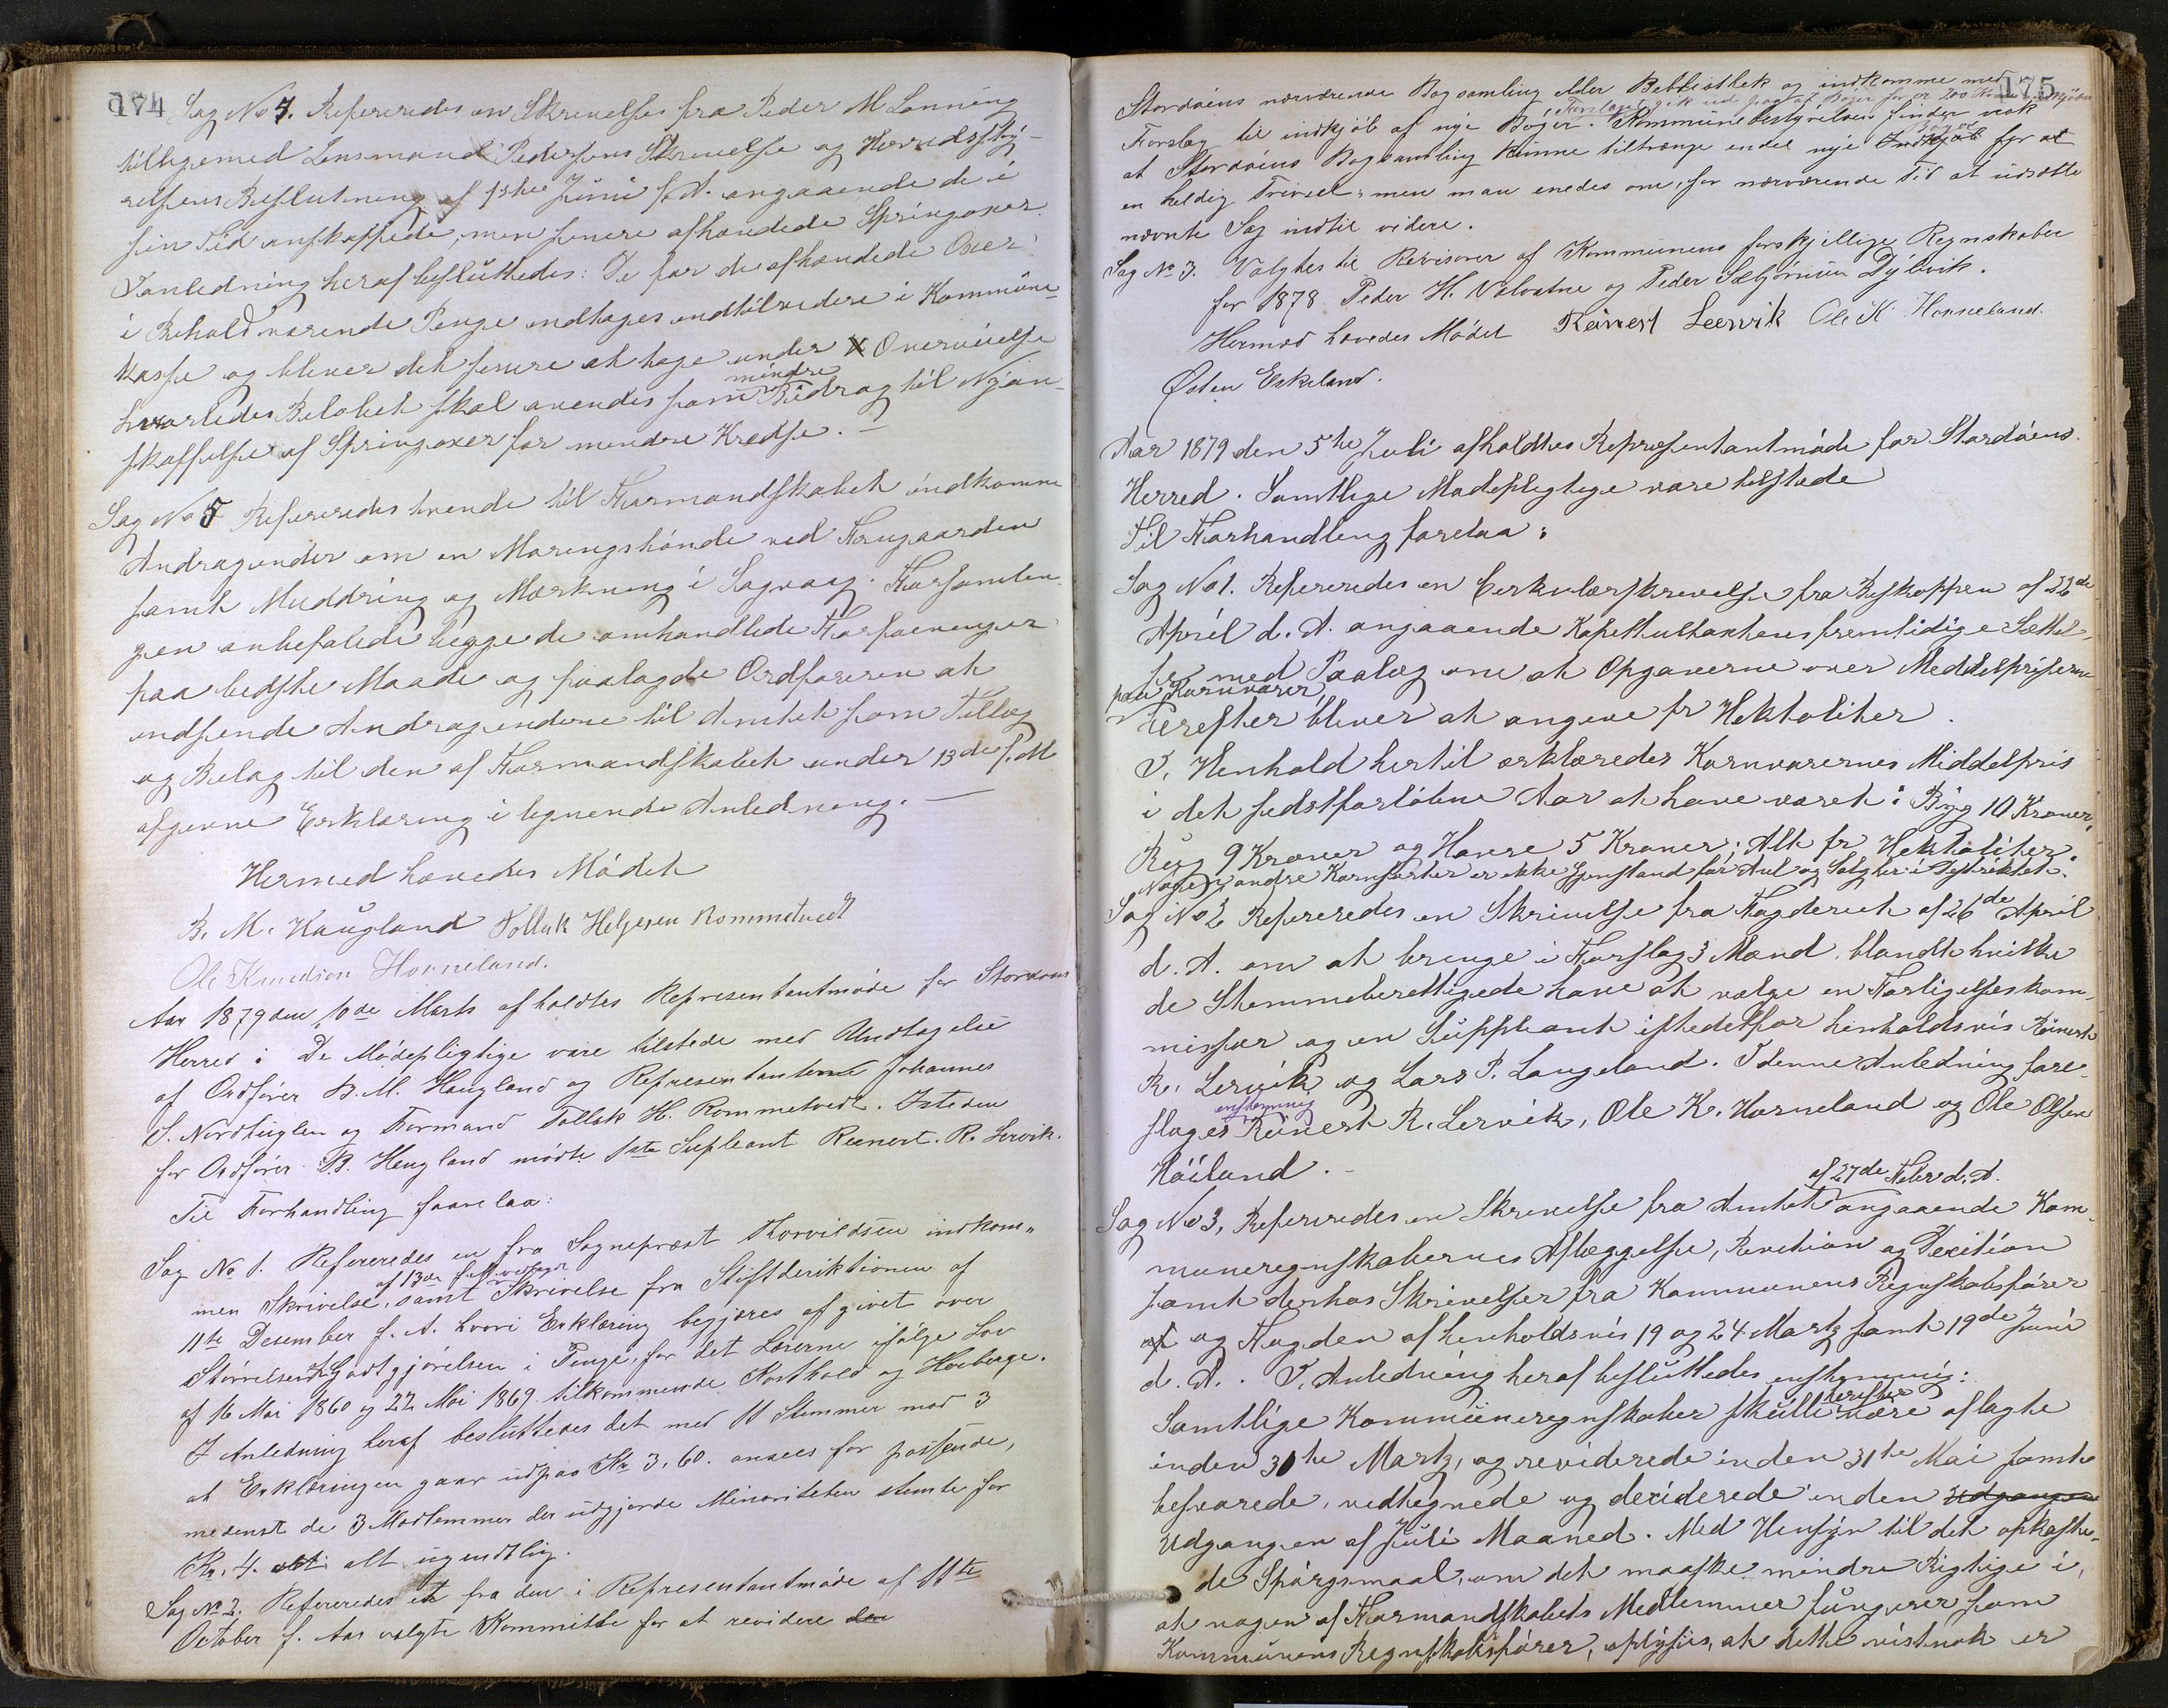 174
Sag No 4. Refereredes en Skrivelse fra Peder M Lønning
tilligemed Lensmand Pedersens Skrivelse og Herredssty-
relsens Beslutning af 1ste Juni f. A. angaaende de i
sin Tid anskaffede, men senere afhændede Springoxer.
I anledning heraf besluttedes: De for de afhændede Oxer
i Behold værende Penge indtages indtilvidere i Kommune-
kasse og bliver det senere at tage under Overveielse
hvorledes Beløbet skal anvendes som mindre Bidrag til Nyan-
skaffelse af Springoxer for mindre Kredse. —
Sag No 5 Refereredes tvende til Formandskabet indkomne
Andragender om en Moringsbønde ved Frugaarden
samt Muddring og Mærkning i Sagvaag. Forsamlin
gen anbefalede begge de omhandlede Forføininger
paa bedste Maade og paalagde Ordføreren at
indsende Andragenderne til Amtet som Tillæg
og Bilag til den af Formandskabet under 13de f. M
afgivne Erklæring i lignende Anledning. —
Hermed hævedes Mødet
B. M. Haugland Tollak Helgesen Rommetvedt
Ole Knudsen Horneland.
Aar 1879 den 10de Marts afholdtes Representantmøde for Stordøens
Herred: De Mødepligtige vare tilstede med Undtagelse
af Ordfører B. M. Haugland og Representanterne Johannes
S. Nordhuglen og Formand Tollak H. Rommetvedt. Isteden
for Ordfører B. Haugland mødte 1ste Supleant Reinert. R. Lervik.
Til Forhandling forelaa:
Sag No 1. Refereredes en fra Sognepræst Thorvildsen indkom-
men Skrivelse af 13de f. M. samt Skrivelse fra Stiftderiktionen af
11te Desember f. A. hvori Erklæring begjæres afgivet over
Størrelsen af Godtgjørelsen i Penge, for det Lærerne ifølge Lov
af 16 Mai 1860 og 22 Mai 1869 tilkommende Kosthold og Herberge.
I Anledning heraf besluttedes det med 11 Stemmer mod 3
at Erklæringen gaar ud paa Kr 3,60. ansees for passende,
medenst de 3 Medlemmer der udgjorde Minoriteten stemte for
Kr. 4. alt ugendtlig.
Sag No 2. Refereredes et fra den i Representantmøde af 11te
October f. Aar valgte Kommitte for at revidere den
175
Stordøens nærværende Bogsamling eller Bebliothek og indkomme med
Forslaget gik ud paa af Bøger for ca 200 Kroner
Forslag til indkjøb af nye Bøger. Kommunebestyrelsen finder nok
at Stordøens Bogsamling kunne tiltrænge endel nye Indkjøb Bøger for at
en heldig Trivsel; men man enedes om, for nærværende Tid at udsætte
nævnte Sag indtil videre.
Sag No 3. Valgtes til Revisorer af Kommunens forskjellige Regnskaber
for 1878 Peder H. Valvatne og Peder Sæbjørnsen Dybvik.
Hermed hævedes Mødet Reinert Leervik Ole K Horneland.
Østen Eskeland.
Aar 1879 den 5te Juli afholdtes Repræsentantmøde for Stordøens
Herred. Samtlige Mødepligtige vare tilstede
Til Forhandling forelaa:
Sag No 1. Refereredes en Cirkulærskrivelse fra Biskoppen af 22de
April d. A. angaaende Kapitultaxtens fremtidige Sættel-
se med Paalæg om at Opgaverne over Middelpriserne
paa Kornvarer
herefter bliver at angive pr Hektoliter.
I Henhold hertil erklæredes Kornvarernes Middelpris
i det sidstforløbne Aar at have været: Byg 10 Kroner,
Rug 9 Kroner og Havre 5 Kroner; Alt pr Hektoliter.
Nogen andre Kornsorter er ikke Gjenstand for Avl og Salg her i Distriktet.
Sag No 2 Refereredes en Skrivelse fra Fogderiet af 26de April
d. A. om at bringe i Forslag 3 Mænd, blandt hvilke
de Stemmeberettigede have at vælge en Forligelseskom-
missær og en Suppleant istedetfor henholdsvis Reinert
R. Lervik og Lars P. Langeland. I denne Anledning fore-
sloges enstemmig Reinert R. Lervik, Ole K. Horneland og Ole Olsen
Høiland. —
Sag No 3, Refereredes en Skrivelse fra Amtet af 27de Febr d. A. angaaende Kom-
muneregnskabernes Aflæggelse, Revition og Decition
samt derhos Skrivelser fra Kommunens Regnskabsfører
af og Fogden af henholdsvis 19 og 24 Marts samt 19de Juni
d. A. . I Anledning heraf besluttedes enstemmig:
Samtlige Kommuneregnskaber skulle herefter være aflagte
inden 31te Marts, og reviderede inden 31te Mai samt
besvarede, vedtegnede og deciderede inden Udgangen
Udgangen af Juli Maaned. Med Hensyn til det opkaste-
de Spørgsmaal, om det maaske mindre Rigtige i,
at nogen af Formandskabets Medlemmer fungerer som
Kommunens Regnskabsfører, oplyses, at dette vistnok er